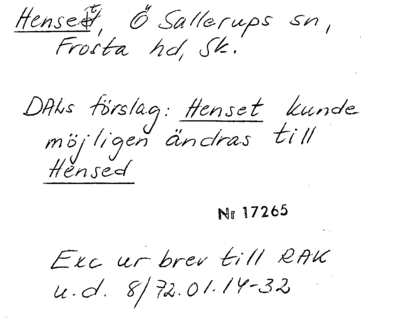 Henset, Ö Sallerups sn,
Frosta hd, Sk.
DALs förslag: Henset kunde
möjligen ändras till
Hensed
Nr 17265
Exc ur brev till RAK
u.d. 8/72.01.14-32